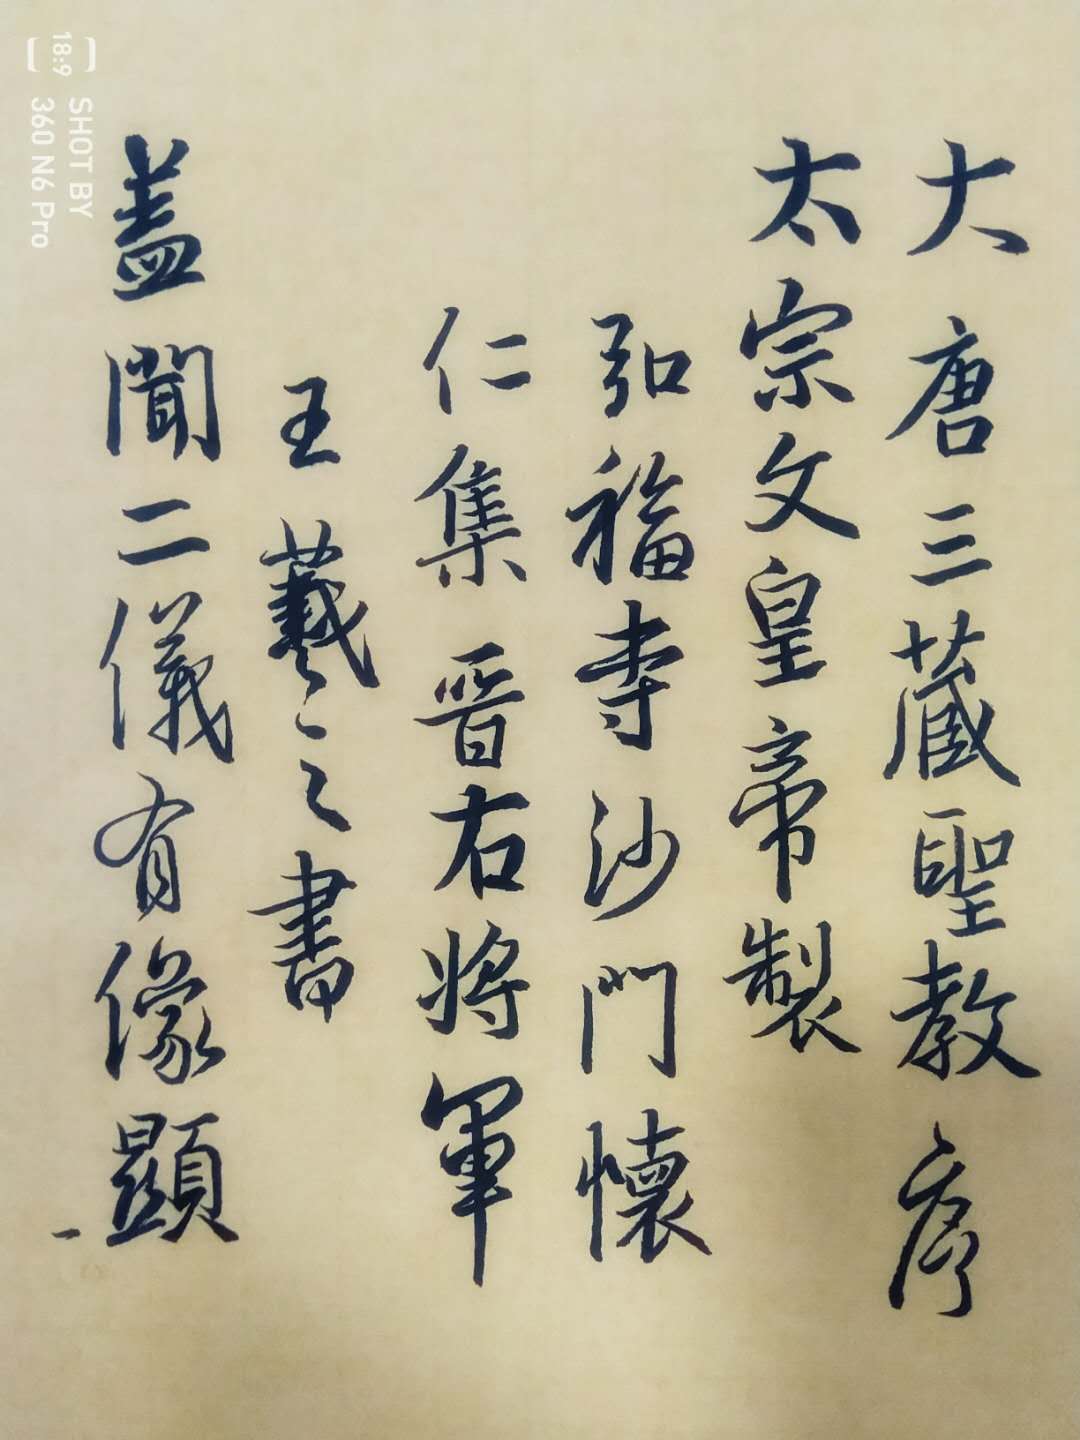 大唐三藏聖教序
太宗文皇帝製
弘福寺沙門懷
仁集晋右將軍
王羲之書
盖聞二儀有像顯
[18:9]
SHOT BY
360 N6 Pro